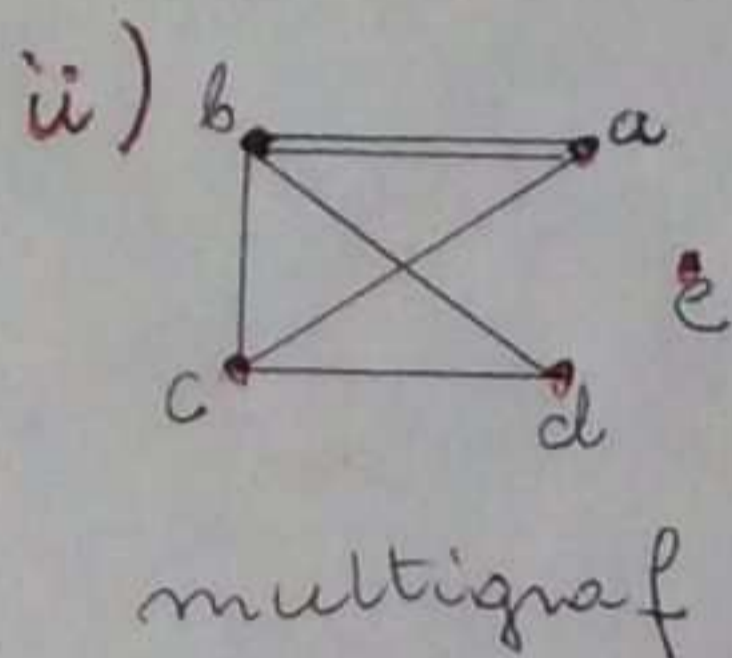 ii) b a
e
c d
multigraf